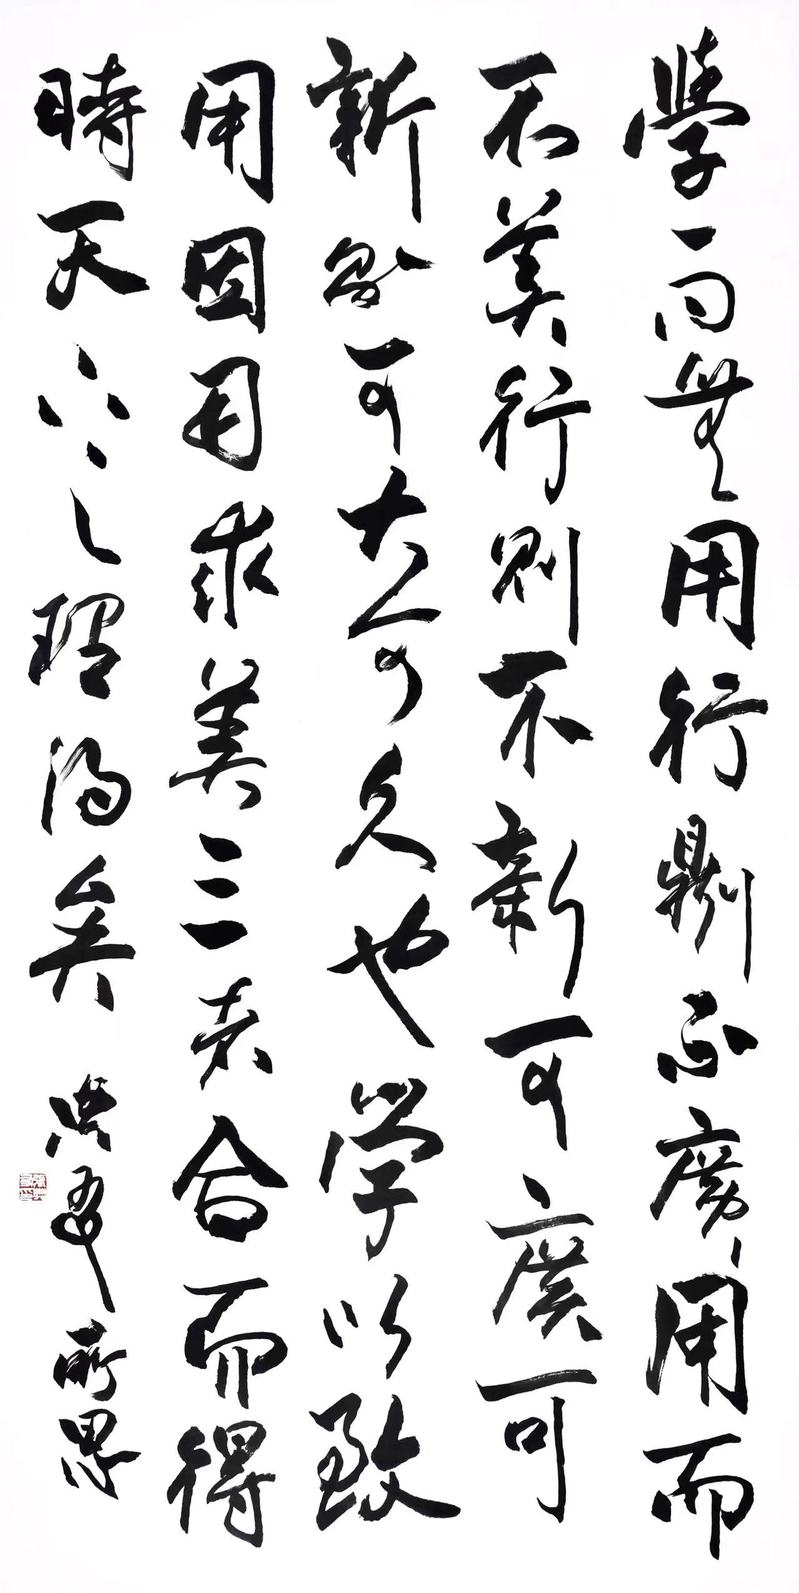 學而無用行則不廣用而
不美行則不新可廣可
新則可大可久也学以致
用因用求美三者合而得
時天下之理得矣
所思